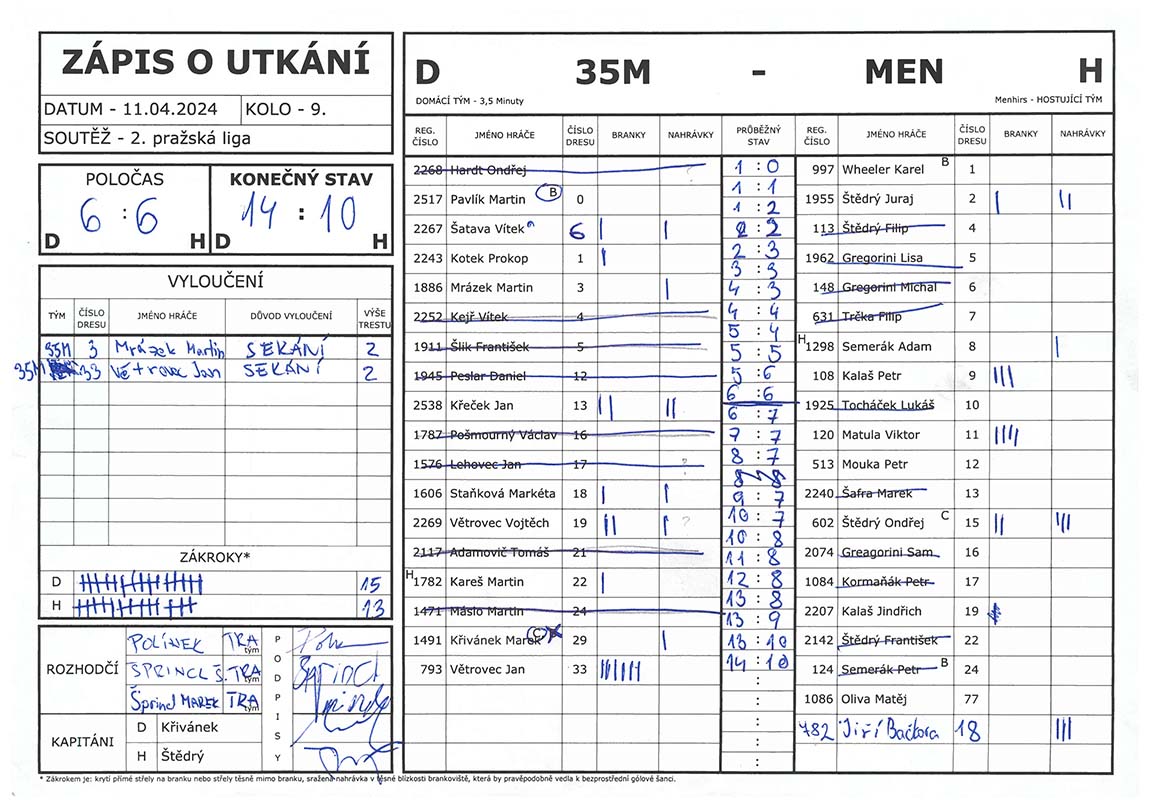 ZÁPIS O UTKÁNÍ
DATUM - 11.04.2024 KOLO - 9.
SOUTĚŽ - 2. pražská liga
POLOČAS KONEČNÝ STAV
6 : 6 14 : 10
D H D H
VYLOUČENÍ
TÝM ČÍSLO DRESU JMÉNO HRÁČE DŮVOD VYLOUČENÍ VÝŠE TRESTU
35M 3 Mrázek Martin SEKÁNÍ 2
35M 33 Větrovec Jan SEKÁNÍ 2
ZÁKROKY*
D 15
H 13
ROZHODČÍ
POLÍNEK TRA tým
ŠPRINCL Š. TRA tým
Šprincl MAREK TRA tým
PODPISY
KAPITÁNI
D Křivánek
H Štědrý
D 35M - MEN H
DOMÁCÍ TÝM - 3,5 Minuty Menhirs - HOSTUJÍCÍ TÝM
REG. ČÍSLO JMÉNO HRÁČE ČÍSLO DRESU BRANKY NAHRÁVKY
2268 Hardt Ondřej ?
2517 Pavlík Martin B 0
2267 Šatava Vítek 6 | |
2243 Kotek Prokop 1 |
1886 Mrázek Martin 3 |
2252 Kejř Vítek 4
1911 Šlik František 5
1945 Peslar Daniel 12
2538 Křeček Jan 13 || ||
1787 Pošmourný Václav 16
1576 Lehovec Jan 17 ?
1606 Staňková Markéta 18 | |
2269 Větrovec Vojtěch 19 || | ?
2117 Adamovič Tomáš 21
H 1782 Kareš Martin 22 |
1471 Máslo Martin 24
1491 Křivánek Marek C 29 |
793 Větrovec Jan 33 ||||||
PRŮBĚŽNÝ STAV
1 : 0
1 : 1
1 : 2
2 : 2
2 : 3
3 : 3
4 : 3
4 : 4
5 : 4
5 : 5
5 : 6
6 : 6
6 : 7
7 : 7
8 : 7
8 : 8
9 : 7
10 : 7
10 : 8
11 : 8
12 : 8
13 : 8
13 : 9
13 : 10
14 : 10
:
:
:
:
:
REG. ČÍSLO JMÉNO HRÁČE ČÍSLO DRESU BRANKY NAHRÁVKY
997 Wheeler Karel B 1
1955 Štědrý Juraj 2 | ||
113 Štědrý Filip 4
1962 Gregorini Lisa 5
148 Gregorini Michal 6
631 Trčka Filip 7
H 1298 Semerák Adam 8 |
108 Kalaš Petr 9 |||
1925 Tocháček Lukáš 10
120 Matula Viktor 11 ||||
513 Mouka Petr 12
2240 Šafra Marek 13
602 Štědrý Ondřej C 15 || |||
2074 Greagorini Sam 16
1084 Kormaňák Petr 17
2207 Kalaš Jindřich 19
2142 Štědrý František 22
124 Semerák Petr B 24
1086 Oliva Matěj 77
782 Jiří Bačkora 18 |||
* Zákrokem je: krytí přímé střely na branku nebo střely těsně mimo branku, sražená nahrávka v těsné blízkosti brankoviště, která by pravěpodobně vedla k bezprostřední gólové šanci.